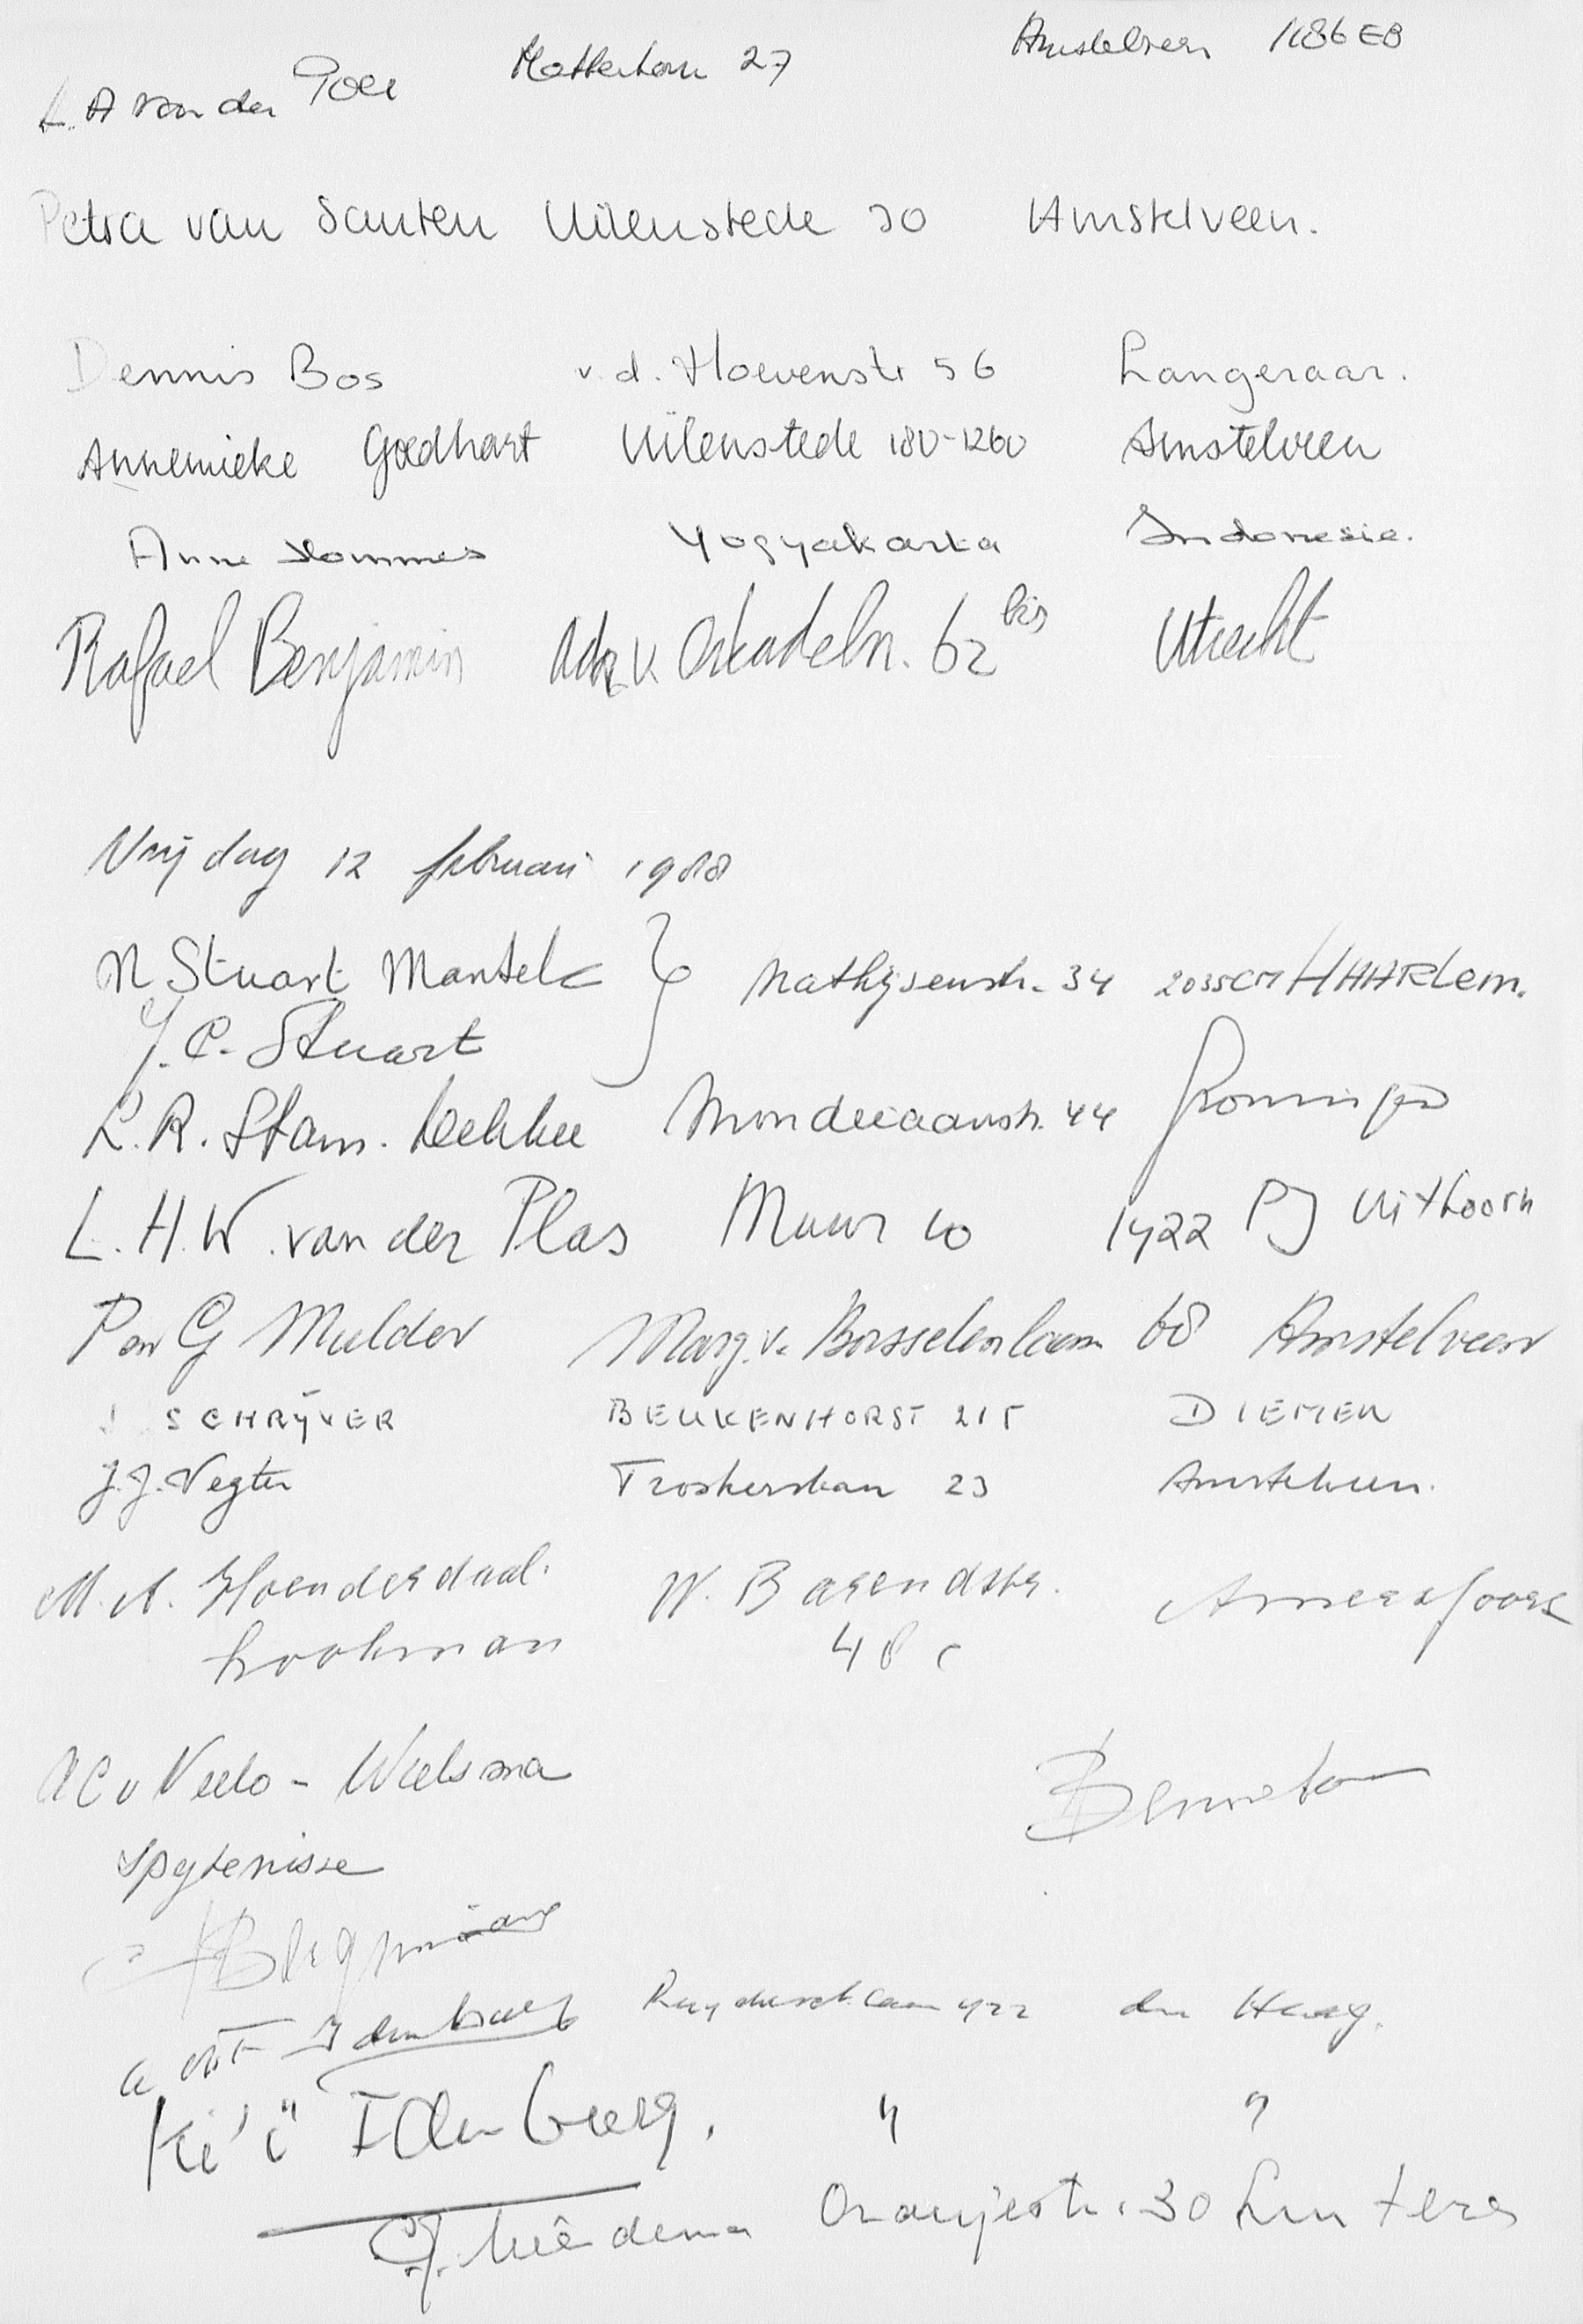 L. A van der Poll Matterhorn 27 Amstelveen 1186 EB
Petra van Santen Uilenstede 30 Amstelveen.
Dennis Bos v.d. Hoevenstr 56 Langeraar.
Annemieke Goedhart Uilenstede 180-1260 Amstelveen
Anne Hommes Yogyakarta Indonesie.
Rafael Benjamin Adr. v. Ostadeln. 62 bis Utrecht
Vrijdag 12 februari 1988
M Stuart Mantel Mathijsenstr. 34 2035 CM HAARlem.
J. C. Stuart
L. R. Stam. 44 Groningen
L. H. W. van der Plas Muur 10 1422 PJ Uithoorn
P en G Mulder Marg. v. Borsselenlaan 68 Amstelveen
J SCHRIJVER BEUKENHORST 215 DIEMEN
J. J. Vegter Troskersbaan 23 Amstelveen.
M. A. Hoenderdaal. W. Barendstr. Amersfoort
Lookman 48 c
A C v Veelo - Wielsma
Spijkenisse
Idenburg 422 den Haag.
Idenburg. " "
Miedema Oranjestr. 30 Lunteren